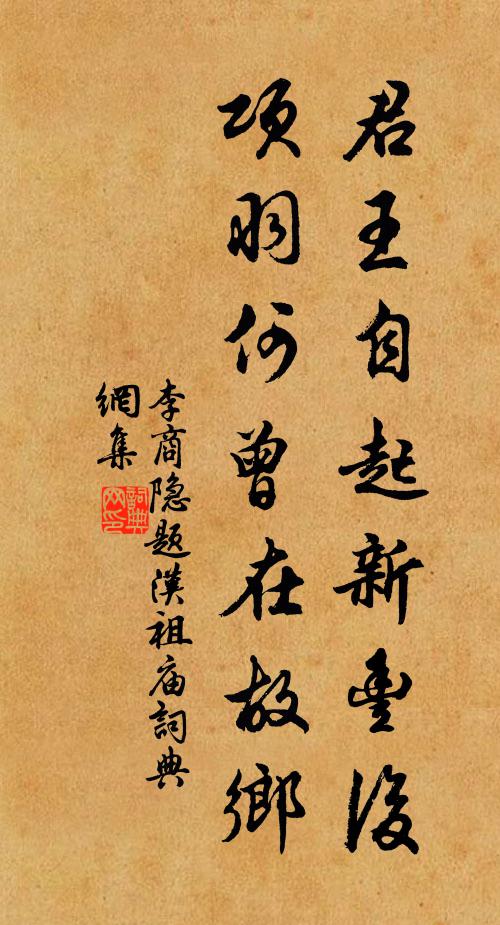 君王自起新豐後
項羽何曾在故鄉
李商隐題漢祖庙詞典
網集
詞典網印